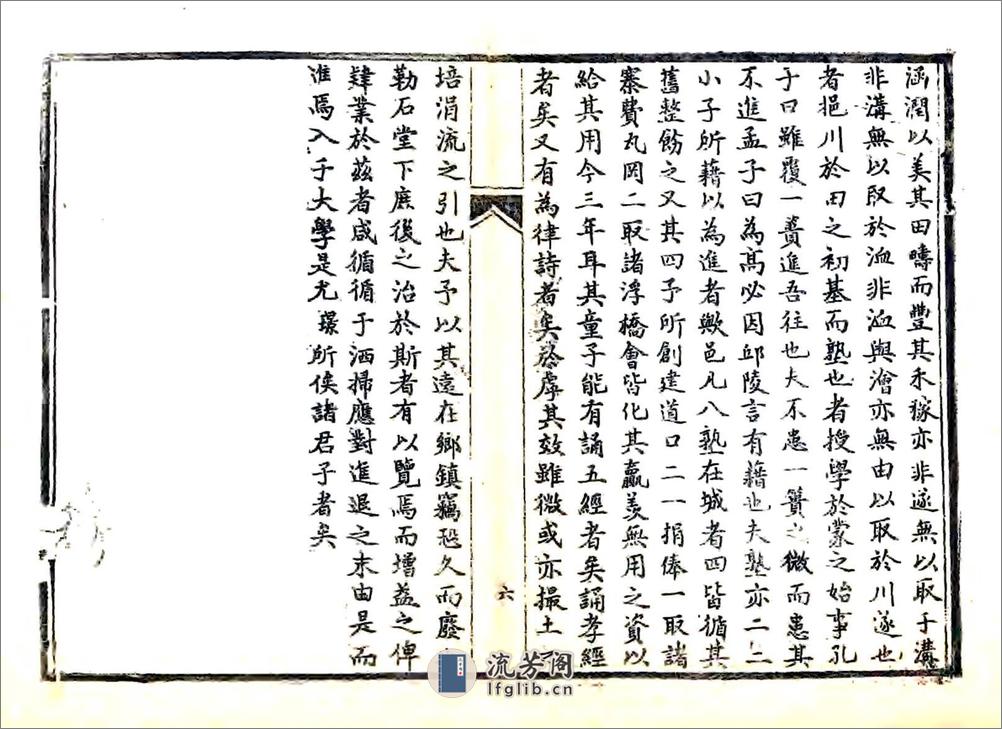 涵潤以美其田疇而豐其禾稼亦非遂無以取于溝
非溝無以取於洫非洫與澮亦無由以取於川遂也
者挹川於田之初基而塾也者授學於蒙之始事孔
子曰雖覆一蕢進吾往也夫不患一簣之微而患其
不進孟子曰為髙必因邱陵言有藉也夫塾亦二三
小子所藉以為進者歟邑凡八塾在城者四皆循其
舊整飭之又其四予所創建道口二一捐俸一取諸
寨費丸岡二取諸浮橋會皆化其贏羨無用之資以
給其用今三年耳其童子能有誦五經者矣誦孝經
者矣又有為律詩者矣於虖其效雖微或亦撮土
六
培涓流之引也夫予以其遠在鄉鎮竊恐久而廢
勒石堂下庶後之治於斯者有以覽焉而增益之俾
肄業於茲者咸循循于洒掃應對進退之末由是而
進焉入于大學是尤璟所俟諸君子者矣
流芳阁
lfglib.cn